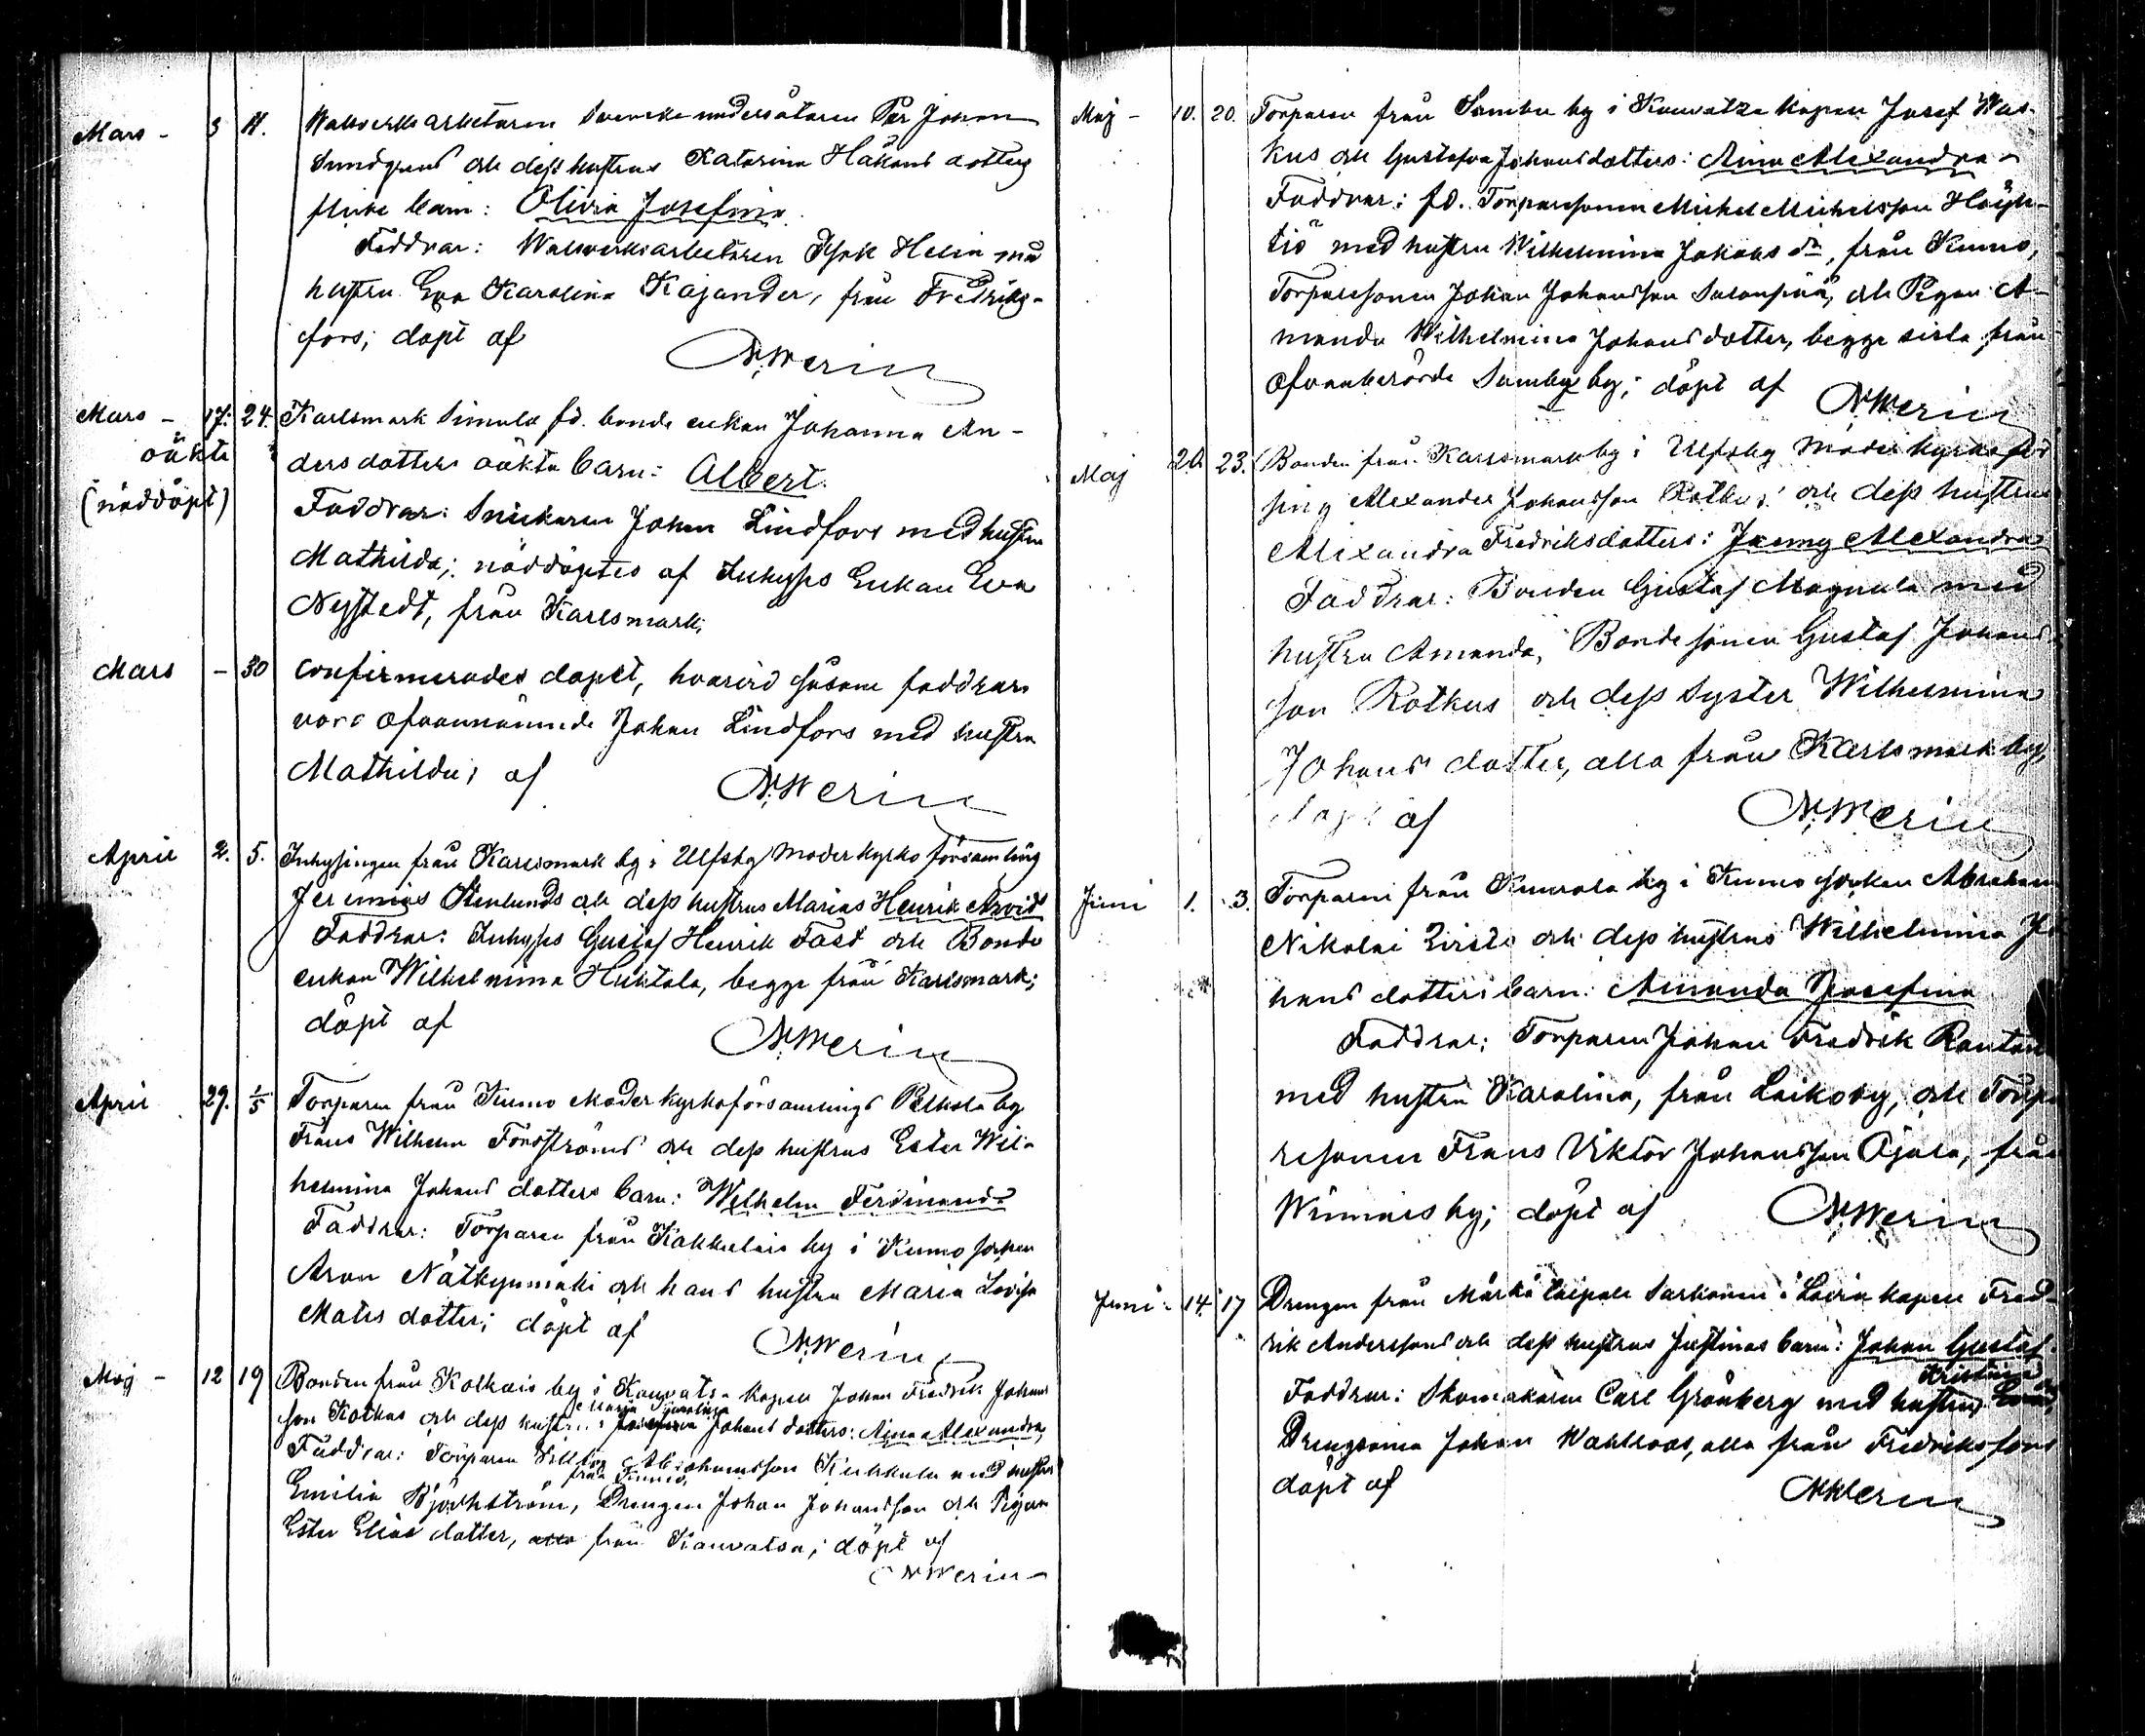 Mars - 3 11. Walsverksarbetaren Svenske undersåtaren Per Johan
Sundgrens och dess hustrus Katarina Håkans dotters
barn: Olivia Josefina.
Faddrar: Walsverksarbetaren Isak Helin med
hustru Eva Karolina Kajander, från Fredriks-
fors; döpt af
N. Werin
Mars - 17. 24. Karlsmark Simula fd. bonde enkan Johanna An-
oäkta
ders dotters oäkta barn: Albert.
(nöddöpt)
Faddrar: Snickaren Johan Lindfors med hustru
Mathilda; nöddöptes af Inhyses Enkan Eva
Nystedt, från Karlsmark;
Mars - 30 confirmerades döpet, hvarvid såsom faddrar
voro ofvannämnde Johan Lindfors med hustru
Mathilda; af
N. Werin
April 2. 5. Inhysingen från Karlsmark by i Ulfsby Moderkyrko församling
Jeremias Stenlunds och dess hustrus Marias Henrik Arvid
Faddrar: Inhyses Gustaf Henrik Fast och Bonde
enkan Wilhelmina Huktala, begge från Karlsmark;
döpt af
N. Werin
April 29. 1/5 Torparen från Kumo Moderkyrkoförsamlings Pelhola by
Frans Wilhelm Forsströms och dess hustrus Ester Wil-
helmina Johans dotters barn: Wilhelm Ferdinand
Faddrar: Torparen från Kakkulais by i Kumo socken
Aron Nätkynmäki och hans hustru Maria Lovisa
Mats dotter; döpt af
N. Werin
Maj - 12 19 Bonden från Kolkais by i Kauvatsa kapell Johan Fredrik Johans
Maria Karolina
son Rotkus och dess hustrus Johans dotters: Aina Alexandra,
Faddrar: Torparen Viktor Abrahamsson Kukkula med hustru
från Kumo,
Emilia Björkström, Drengen Johan Johansson och Pigan
Ester Elias dotter, alla från Kauvatsa; döpt af
N. Werin
Maj - 10. 20. Torparen från Samba by i Kauvatsa kapell Josef Was-
kus och Gustafva Johansdotters: Aina Alexandra
Faddrar: fd. Torparesonen Michel Michelsson Höyk-
tiö med hustru Wilhelmina Jakobs dr, från Kumo,
Torparesonen Johan Johansson Salonpää, och Pigan A-
manda Wilhelmina Johans dotter, begge sista från
ofvanberörde Samby by; döpt af
N. Werin
Maj 20. 23. Bonden från Karlsmark by i Ulfsby Moder kyrkoför
sing Alexander Johansson Rotkus och dess hustrus
Alexandra Fredriksdotters: Jenny Alexandra
Faddrar: Bonden Gustaf Magnula med
hustru Amanda, Bondesonen Gustaf Johans
son Rotkus och dess Syster Wilhelmina
Johans dotter, alla från Karlsmark by,
döpt af
N. Werin
Juni 1. 3. Torparen från Kumo socken Abraham
Nikolai och dess hustrus Wilhelmina Jo
hans dotters barn: Amanda Josefina
Faddrar: Torparen Johan Fredrik Rantan
med hustru Karolina, från Laikoby, och Torpa
resonen Frans Viktor Johansson Ojala, från
Winnais by; döpt af
N. Werin
Juni - 14. 17 Drengen från i Lavia kapell Fred-
rik Anderssons och dess hustrus Justinas barn: Johan Gustaf.
Kristina
Faddrar: Skomakaren Carl Grönberg med hustru
Johan Wahlroos, alla från Fredriksfors
döpt af
N. Werin